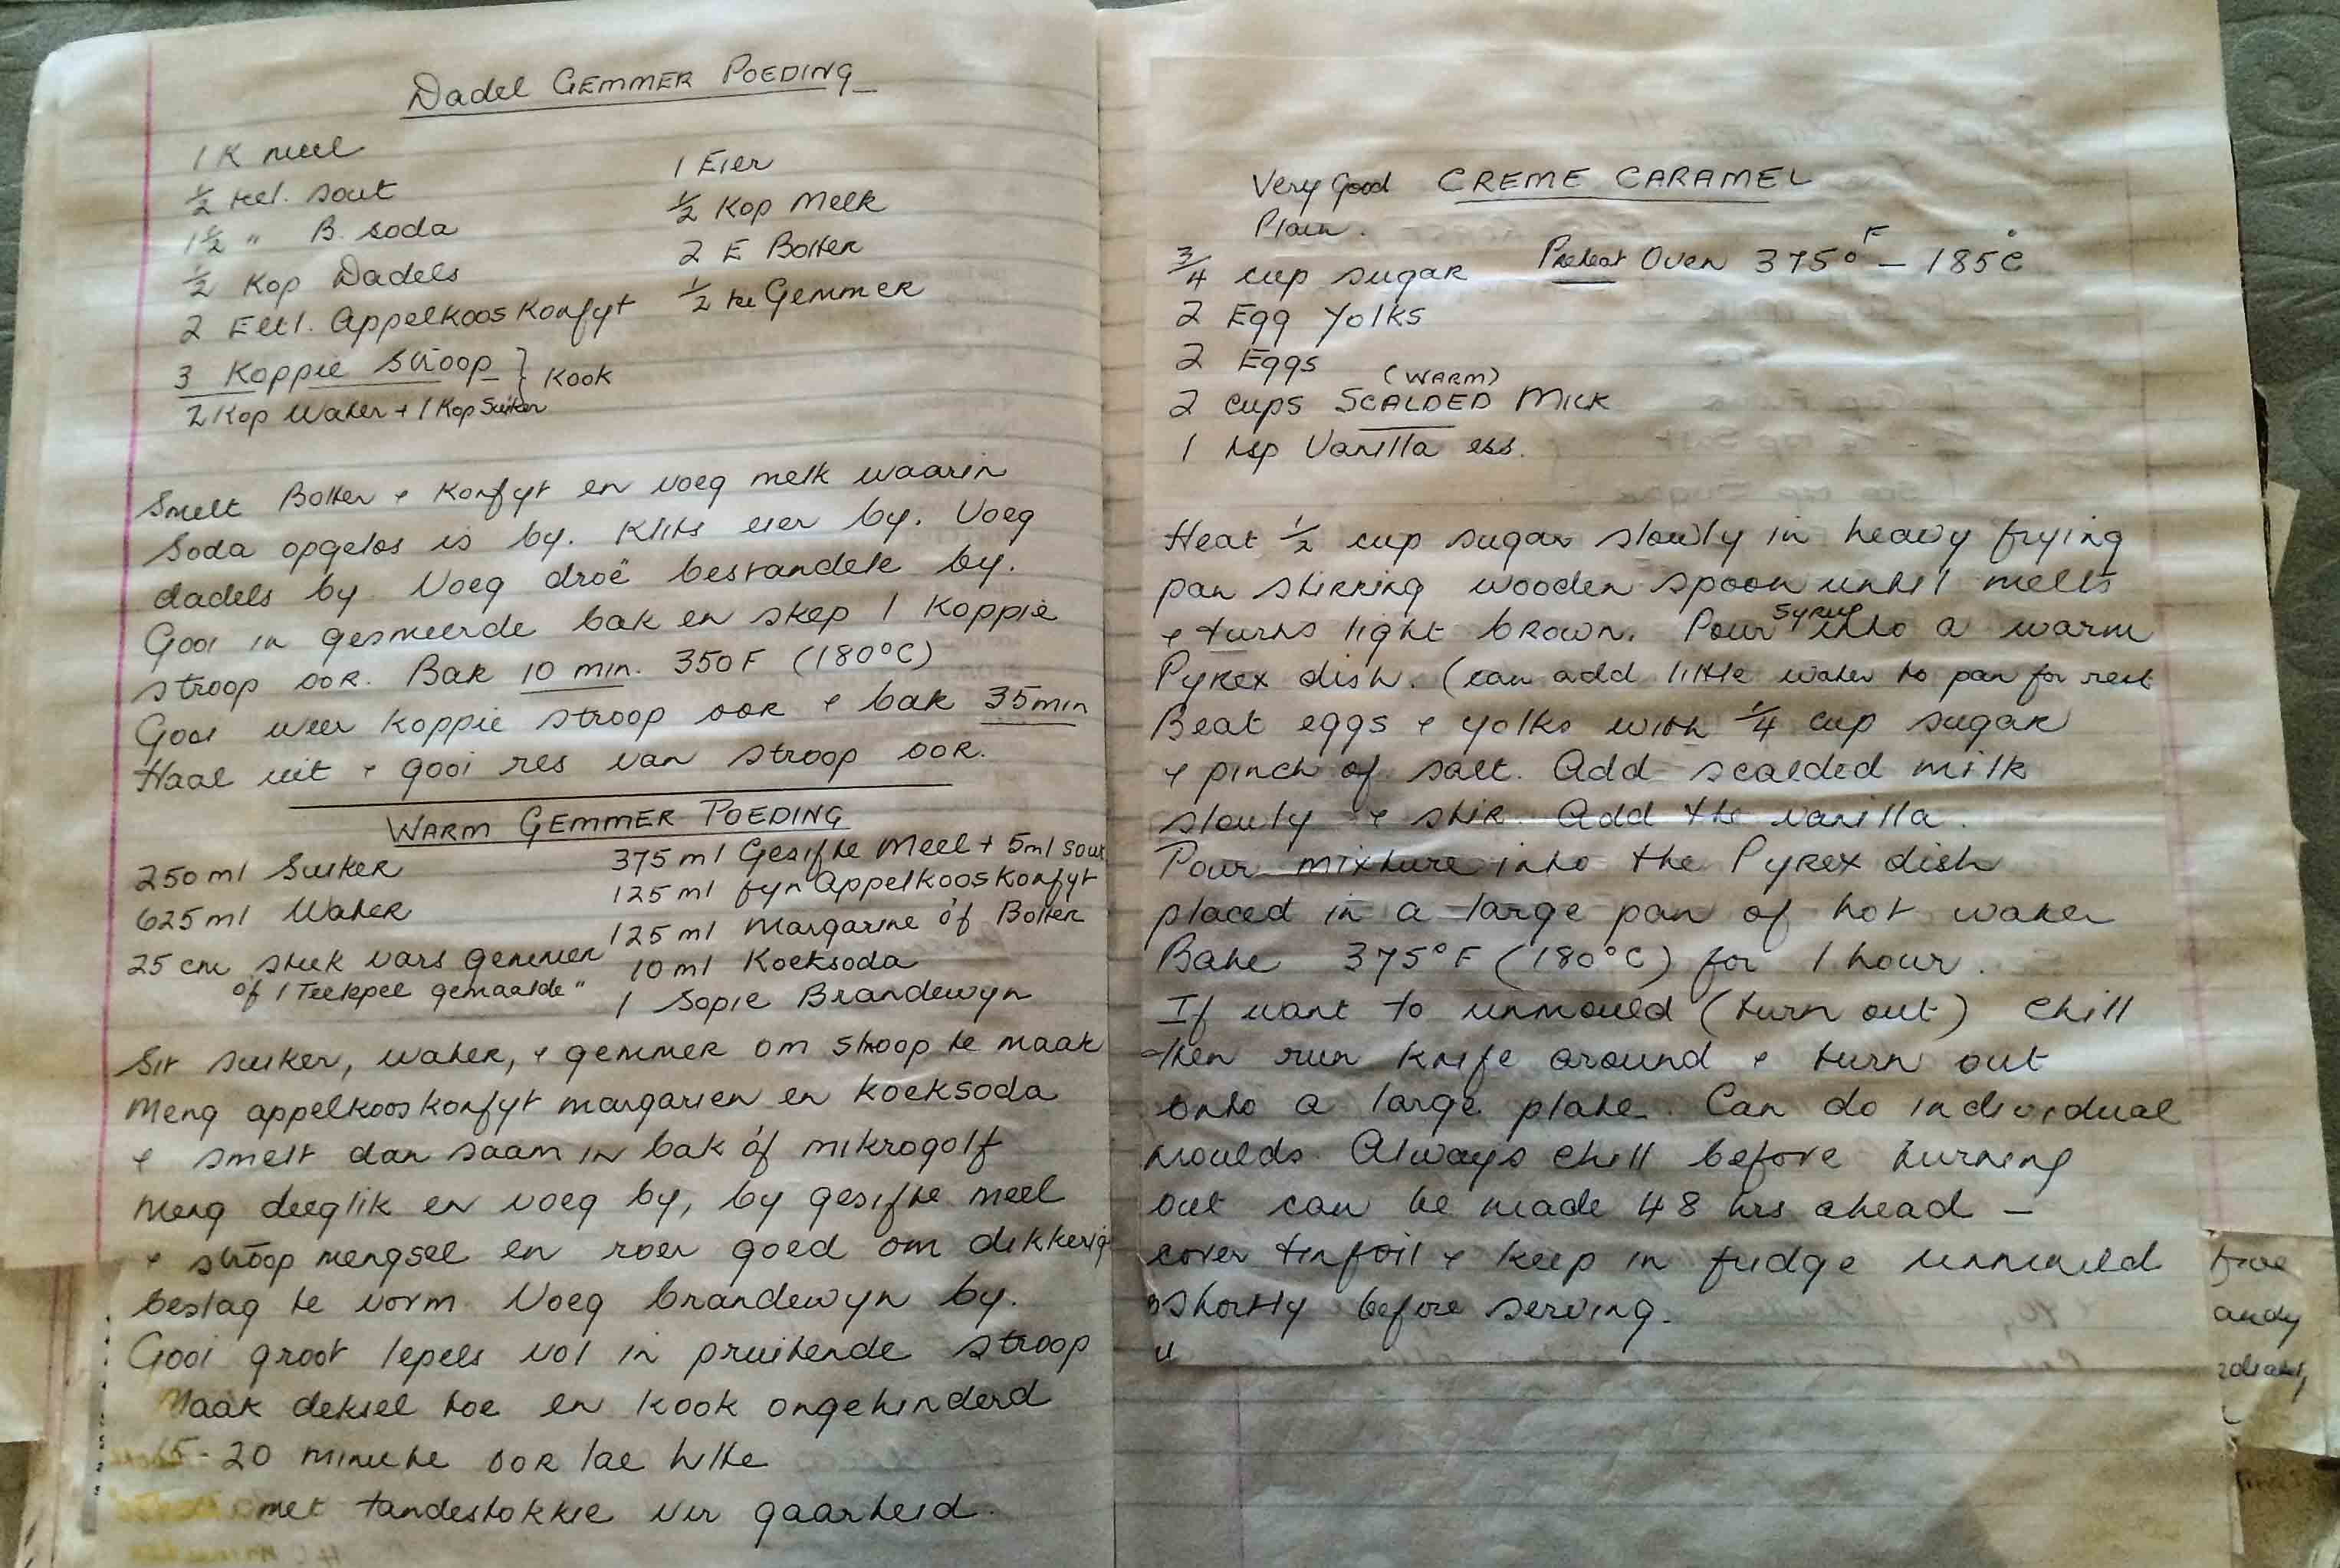 Dadel GEMMER POEDING
1 K meel
½ tel. sout
1½ " B. soda
½ Kop Dadels
2 Eetl. Appelkoos Konfyt
3 Koppie Stroop } Kook
2 Kop Water + 1 Kop Suiker
1 Eier
½ Kop Melk
2 E Botter
½ te Gemmer
Smelt Botter + Konfyt en voeg melk waarin
Soda opgelos is by. Klits eier by. Voeg
dadels by Voeg droë bestandele by.
Gooi in gesmeerde bak en skep 1 Koppie
stroop oor. Bak 10 min. 350F (180°C)
Gooi weer koppie stroop oor + bak 35min
Haal uit + gooi res van stroop oor.
WARM GEMMER POEDING
250ml Suiker
625ml Water
25 cm stuk vars gemmer
of 1 Teelepel gemaalde "
375 ml Gesifte Meel + 5ml sout
125 ml fyn Appelkoos Konfyt
125 ml Margarine óf Botter
10 ml Koeksoda
1 Sopie Brandewyn
Sit suiker, water, + gemmer om stroop te maak
Meng appelkooskonfyt margarien en koeksoda
+ smelt dan saam in bak óf mikrogolf
Meng deeglik en voeg by, by gesifte meel
+ stroop mengsel en roer goed om dikkerig
beslag te vorm. Voeg brandewyn by.
Gooi groot lepels vol in pruitende stroop
Maak deksel toe en kook ongehinderd
15-20 minute oor lae hitte
met tandestokkie vir gaarheid.
Very Good CREME CARAMEL
Plain.
¾ cup sugar Preheat Oven 375°F – 185°C
2 Egg Yolks
2 Eggs
(WARM)
2 cups SCALDED MILK
1 tsp Vanilla ess.
Heat ½ cup sugar slowly in heavy frying
pan stirring wooden spoon until melts
+ turns light brown. Pour syrup into a warm
Pyrex dish. (can add little water to pan for rest
Beat eggs + yolks with ¼ cup sugar
+ pinch of salt. Add scalded milk
slowly + stir. Add the vanilla.
Pour mixture into the Pyrex dish
placed in a large pan of hot water
Bake 375°F (180°C) for 1 hour.
If want to unmould (turn out) chill
then run knife around + turn out
onto a large plate. Can do individual
moulds. Always chill before turning
out can be made 48 hrs ahead –
cover tinfoil + keep in fridge unmould
shortly before serving.
andy